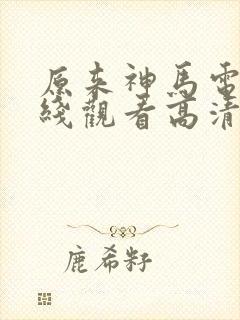 原来神馬電
綫觀看高清
鹿希籽